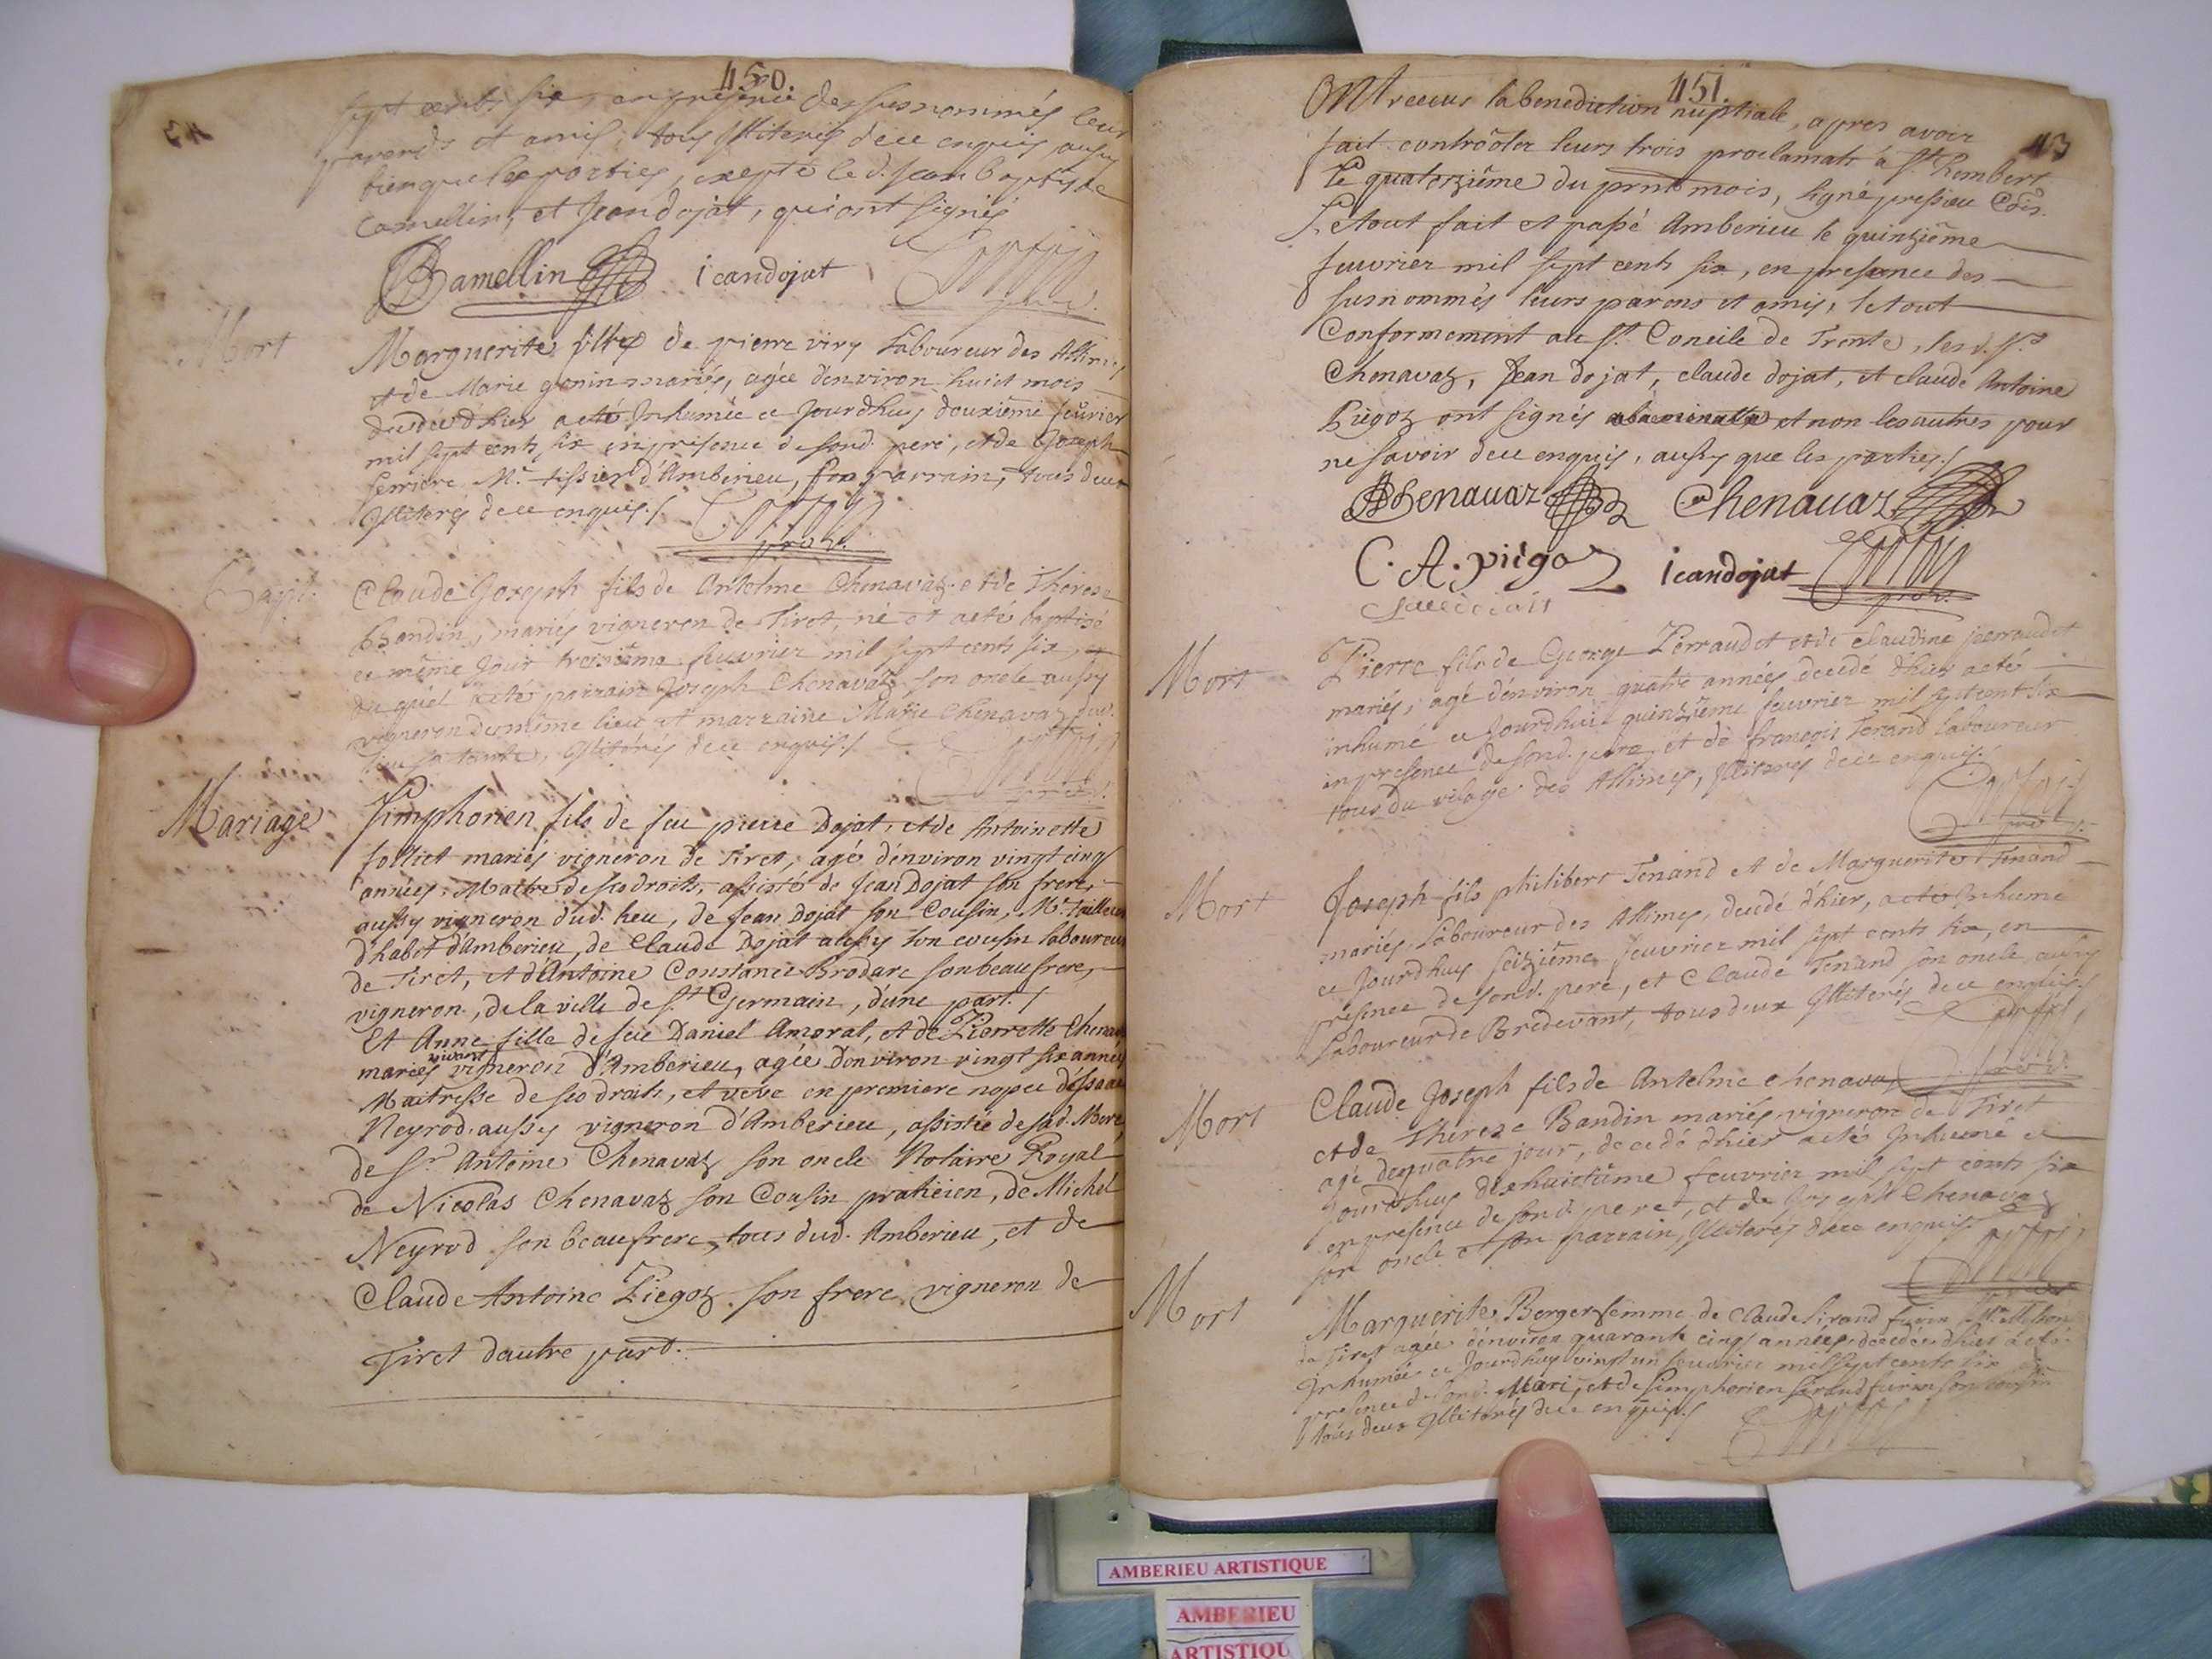 450.
sept cents six, en presence des susnommés leur
parends et amis, tous Illiterés dece enquis aussy
bien que les parties, excepté le d. Jean baptiste
Camellin, et Jean dojat, qui ont signés
BCamellin Jeandojat
Mort
Marguerite fille de pierre viry Laboureur des Allimes,
et de Marie genin mariés, agée d'environ huict mois
decedée d'hier a eté Inhumée ce Jourd'huy douzième feuvrier
mil sept cents six en presence de sond. pere, et de Joseph
serriere Mr. tissier d'Amberieu, son parrain, tous deux
Illiterés dece enquis./.
Bapt.
Claude Joseph fils de Antelme Chenavaz et de Therese
Bandin, mariés vigneron de Tiret né et a eté baptisé
ce même Jour treizième feuvrier mil sept cents six,
duquel a eté parrain Joseph Chenavaz son oncle aussy
vigneron du même lieu et marraine Marie Chenavaz
sa tante, Illiterés dece enquis./.
Mariage
Simphorien fils de feu pierre Dojat, et de Antoinette
folliet mariés vigneron de Tiret, agé d'environ vingt cinq
années, Maitre de ses droits, assisté de Jean Dojat son frere,
aussy vigneron dud. lieu, de Jean Dojat son Cousin, Mr. Tailleur
d'habit d'Amberieu, de Claude Dojat aussy son cousin laboureur
de Tiret, et d'Antoine Constance Brodare son beau frere,
vigneron, de la ville de St. Germain, d'une part./
Et Anne fille de feu Daniel Amoral, et de Pierrette Chenavaz
mariés vivant vigneron d'Amberieu, agée d'environ vingt six années
Maitresse de ses droits, et veve en premiere nopce d'Issaac
Neyrod aussy vigneron d'Amberieu, assistée de sad. Mere,
de Sr. Antoine Chenavaz son oncle Notaire Royal
de Nicolas Chenavaz son Cousin praticien, de Michel
Neyrod son beaufrere, tous dud. Amberieu, et de
Claude Antoine Piegoz son frere vigneron de
Tiret dautre part.
451.
43
Ont receus la benediction nuptiale, apres avoir
fait contrôoler leurs trois proclamats à St. Rembert
le quatorzième du prnt mois, signé pressieu Cõis.
Le tout fait et passé Amberieu le quinzième
feuvrier mil sept cents six, en presence des
susnommés leurs parens et amis, le tout
Conformement au St. Concile de Trente, les d. Srs
Chenavaz, Jean dojat, claude dojat, et claude Antoine
Piegoz ont signés et non les autres pour
ne savoir dece enquis, aussy que les parties./
Chenauaz Chenauaz
C. A. piégoz Jeandojat
Mort
Pierre fils de George Perraudet et de claudine perraudet
mariés, agé d'environ quatre années decedé d'hier a eté
inhumé ce Jourd'huit quinzième feuvrier mil sept cent six
en presence de sond. pere et de françois Tenand laboureur
tous du vilage des Allimes, Illiterés dece enquis./
Mort
Joseph fils philibert Tenand et de Marguerite Tenand
mariés Laboureur des Allimes, decedé d'hier, a eté Inhumé
ce Jourd'huy seizième feuvrier mil sept cents six, en
presence de sond. pere, et Claude Tenand son oncle aussy
Laboureur de Bredevant, tous deux Illiterés dece enquis./
Mort
Claude Joseph fils de Antelme chenavaz
et de Thereze Bandin mariés vigneron de Tiret
agé de quatre jour, decedé d'hier a eté Inhumé ce
Jourd'huy dixhuictième feuvrier mil sept cents six
en presence de sond. pere, et de Joseph Chenavaz
son oncle et son parrain, Illiterés dece enquis.
Mort
Marguerite Berger femme de Claude sirand furin
de Tiret agée d'environ quarante cinq années decedée d'hier a eté
Inhumée ce Jourd'huy vingt un feuvrier mil sept cents six
presence de sond. Mari, et de Simphorien sirand furin son cousin
tous deux Illiterés dece enquis./
AMBERIEU ARTISTIQUE
AMBERIEU
ARTISTIQU